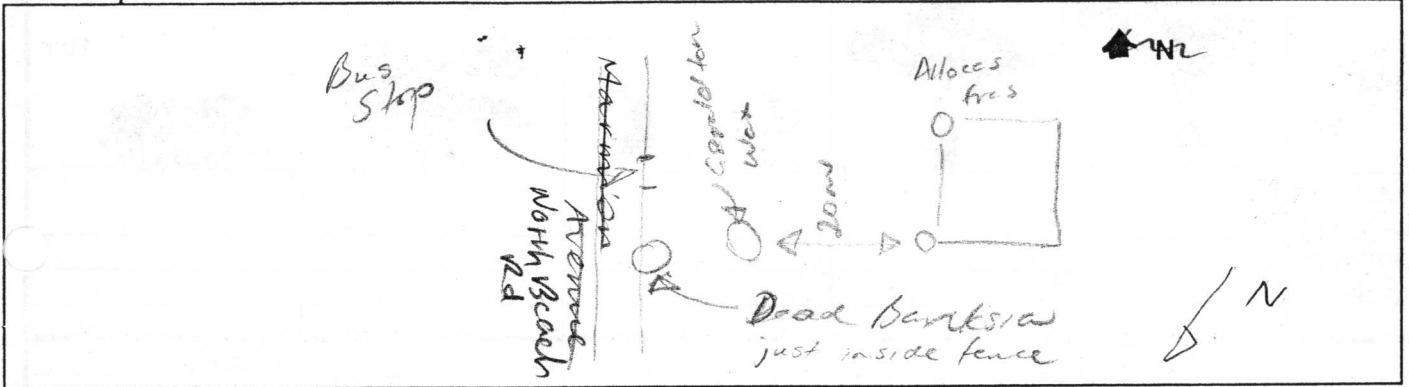 Bus
Stop
Marmion
Avenue
North Beach
Rd
Geraldton
Wax
20m
trees
N
Dead Banksia
just inside fence
N